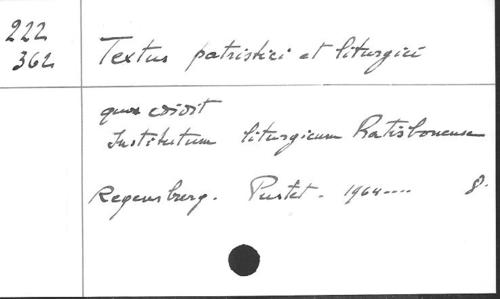 222
362
Textus patristici et liturgici
quos edidit
Institutum liturgicum Ratisbonense
Regensburg. Pustet. 1964.... 8.